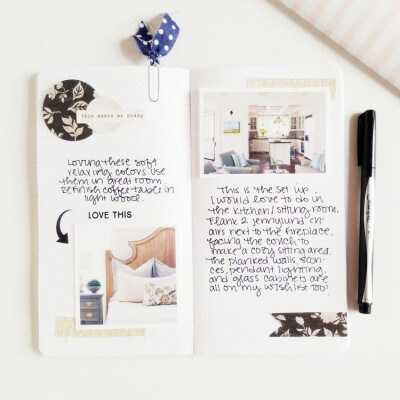 This makes me giddy
Loving these soft
relaxing colors. Use
them in great room.
Refinish coffee table in
light wood.
LOVE THIS
This is the set up
I would love to do in
the kitchen/sitting room.
Flank 2 jennylund ch-
airs next to the fireplace,
facing the couch to
make a cozy sitting area.
The planked walls, scon-
ces, pendant lighting,
and glass cabinets are
all on my wish list too!